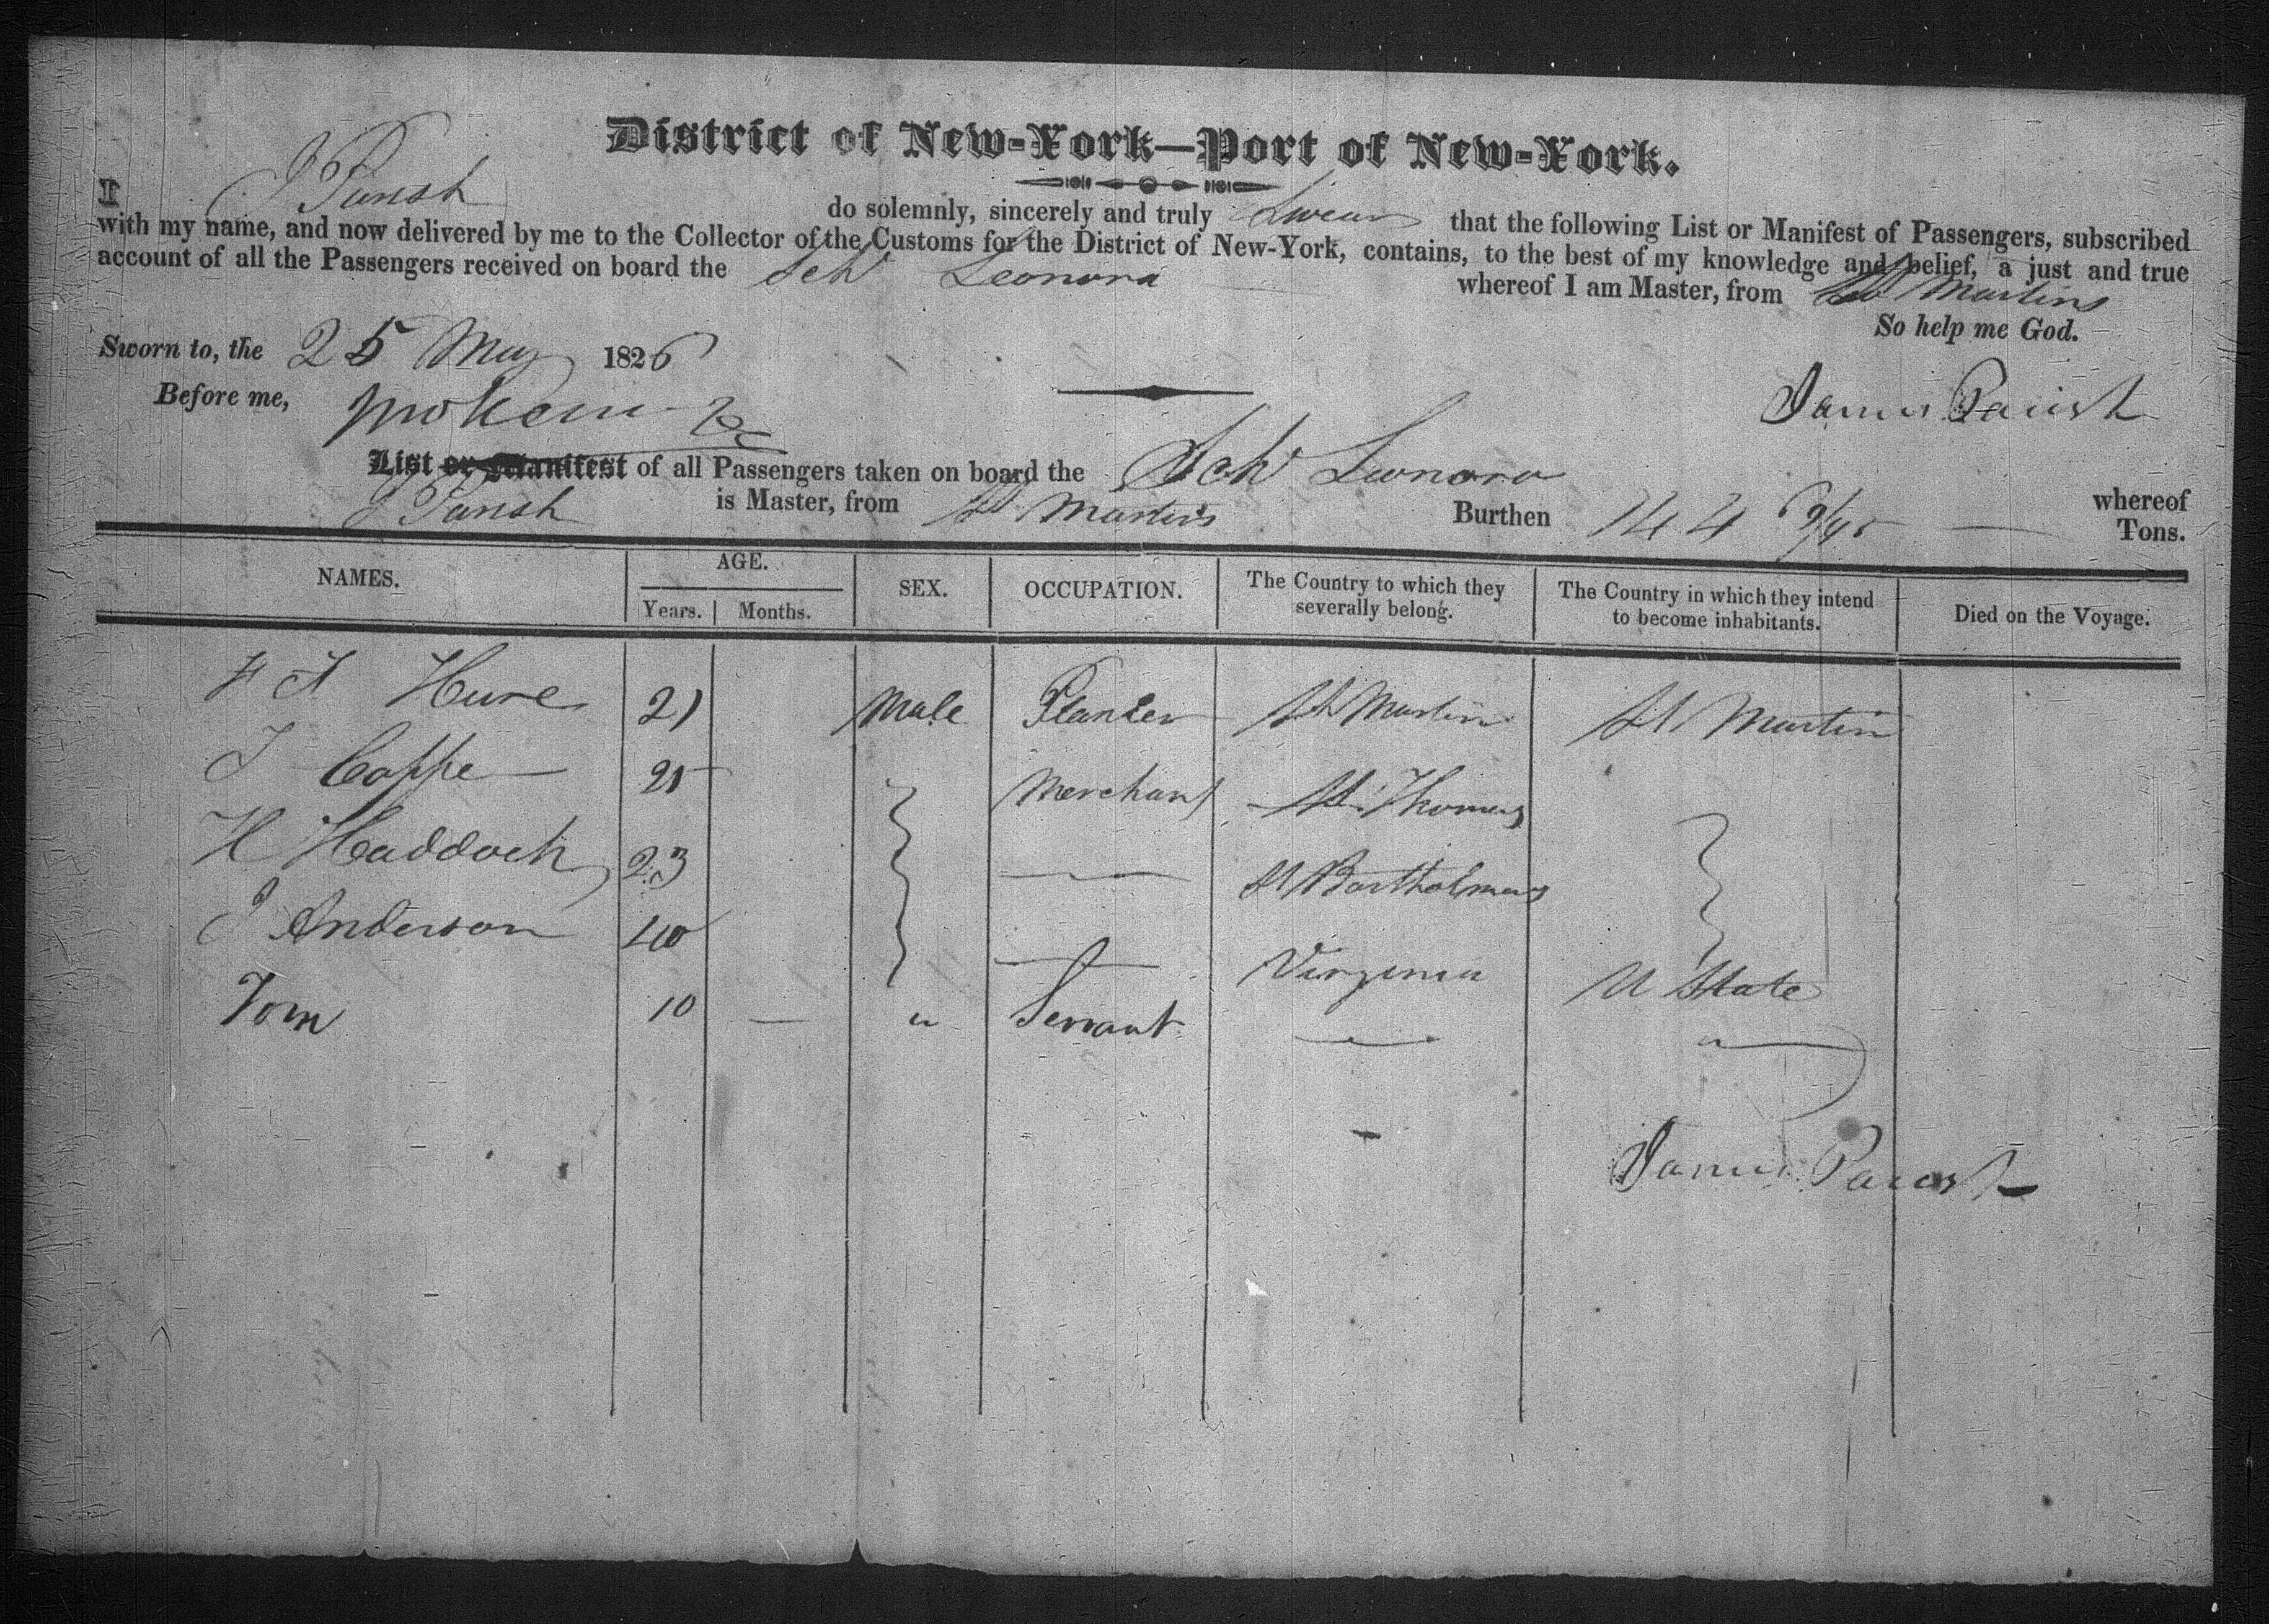 District of New-York—Port of New-York.
I J Parish do solemnly, sincerely and truly Swear that the following List or Manifest of Passengers, subscribed
with my name, and now delivered by me to the Collector of the Customs for the District of New-York, contains, to the best of my knowledge and belief, a just and true
account of all the Passengers received on board the Schr Leonora whereof I am Master, from St Martins
So help me God.
Sworn to, the 25 May 1826
Before me,
James Parish
List or Manifest of all Passengers taken on board the Schr Leonora whereof
J Parish is Master, from St Martins Burthen 144 Tons.
NAMES. AGE. Years. Months. SEX. OCCUPATION. The Country to which they severally belong. The Country in which they intend to become inhabitants. Died on the Voyage.
21 Male Planter St Martin St Martin
Merchant St Thomas
H Haddock 23 — St Bartholmews
J Anderson 40 — Virginia U State
Tom 10 — " Servant — "
James Parish